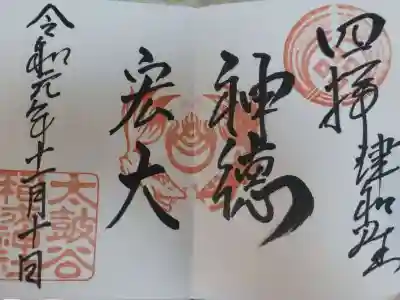 四拝 津和野
神徳
宏大
令和元年十一月十日
太皷谷
稲成神社